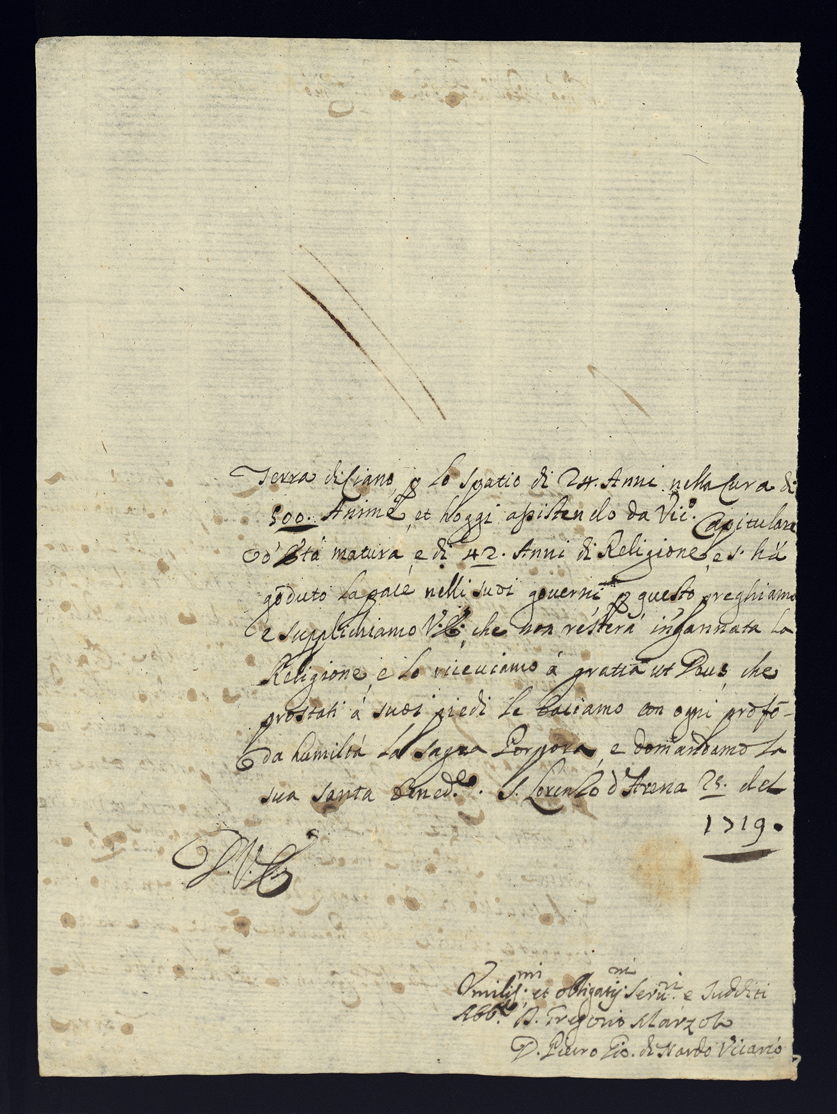 Terra di Ciano, p lo spatio di 24. Anni nella Cura di
500. Anime, et hoggi assistendo da Vic.º Capitulare
d'Età matura, e di 42. Anni di Religione, e s' hà
goduto la pace nelli suoi governi; p questo preghiamo
e supplichiamo V. E. che non resterà ingannata la
Religione, e lo riceviamo à gratia ut Deus, che
prostati à suoi piedi le baciamo con ogni profõ-
da humiltà la sagra Porpora, e domandamo la
sua santa Bened.e. S. Lorenzo d'Arena 25. del
1719.
D. V. E.
Umiliss.mi et obligatis.mi Serv.ri e Sudditi
Abb.e D. Gregorio Marzola
D. Pietro Gio. di Nardo Vicario